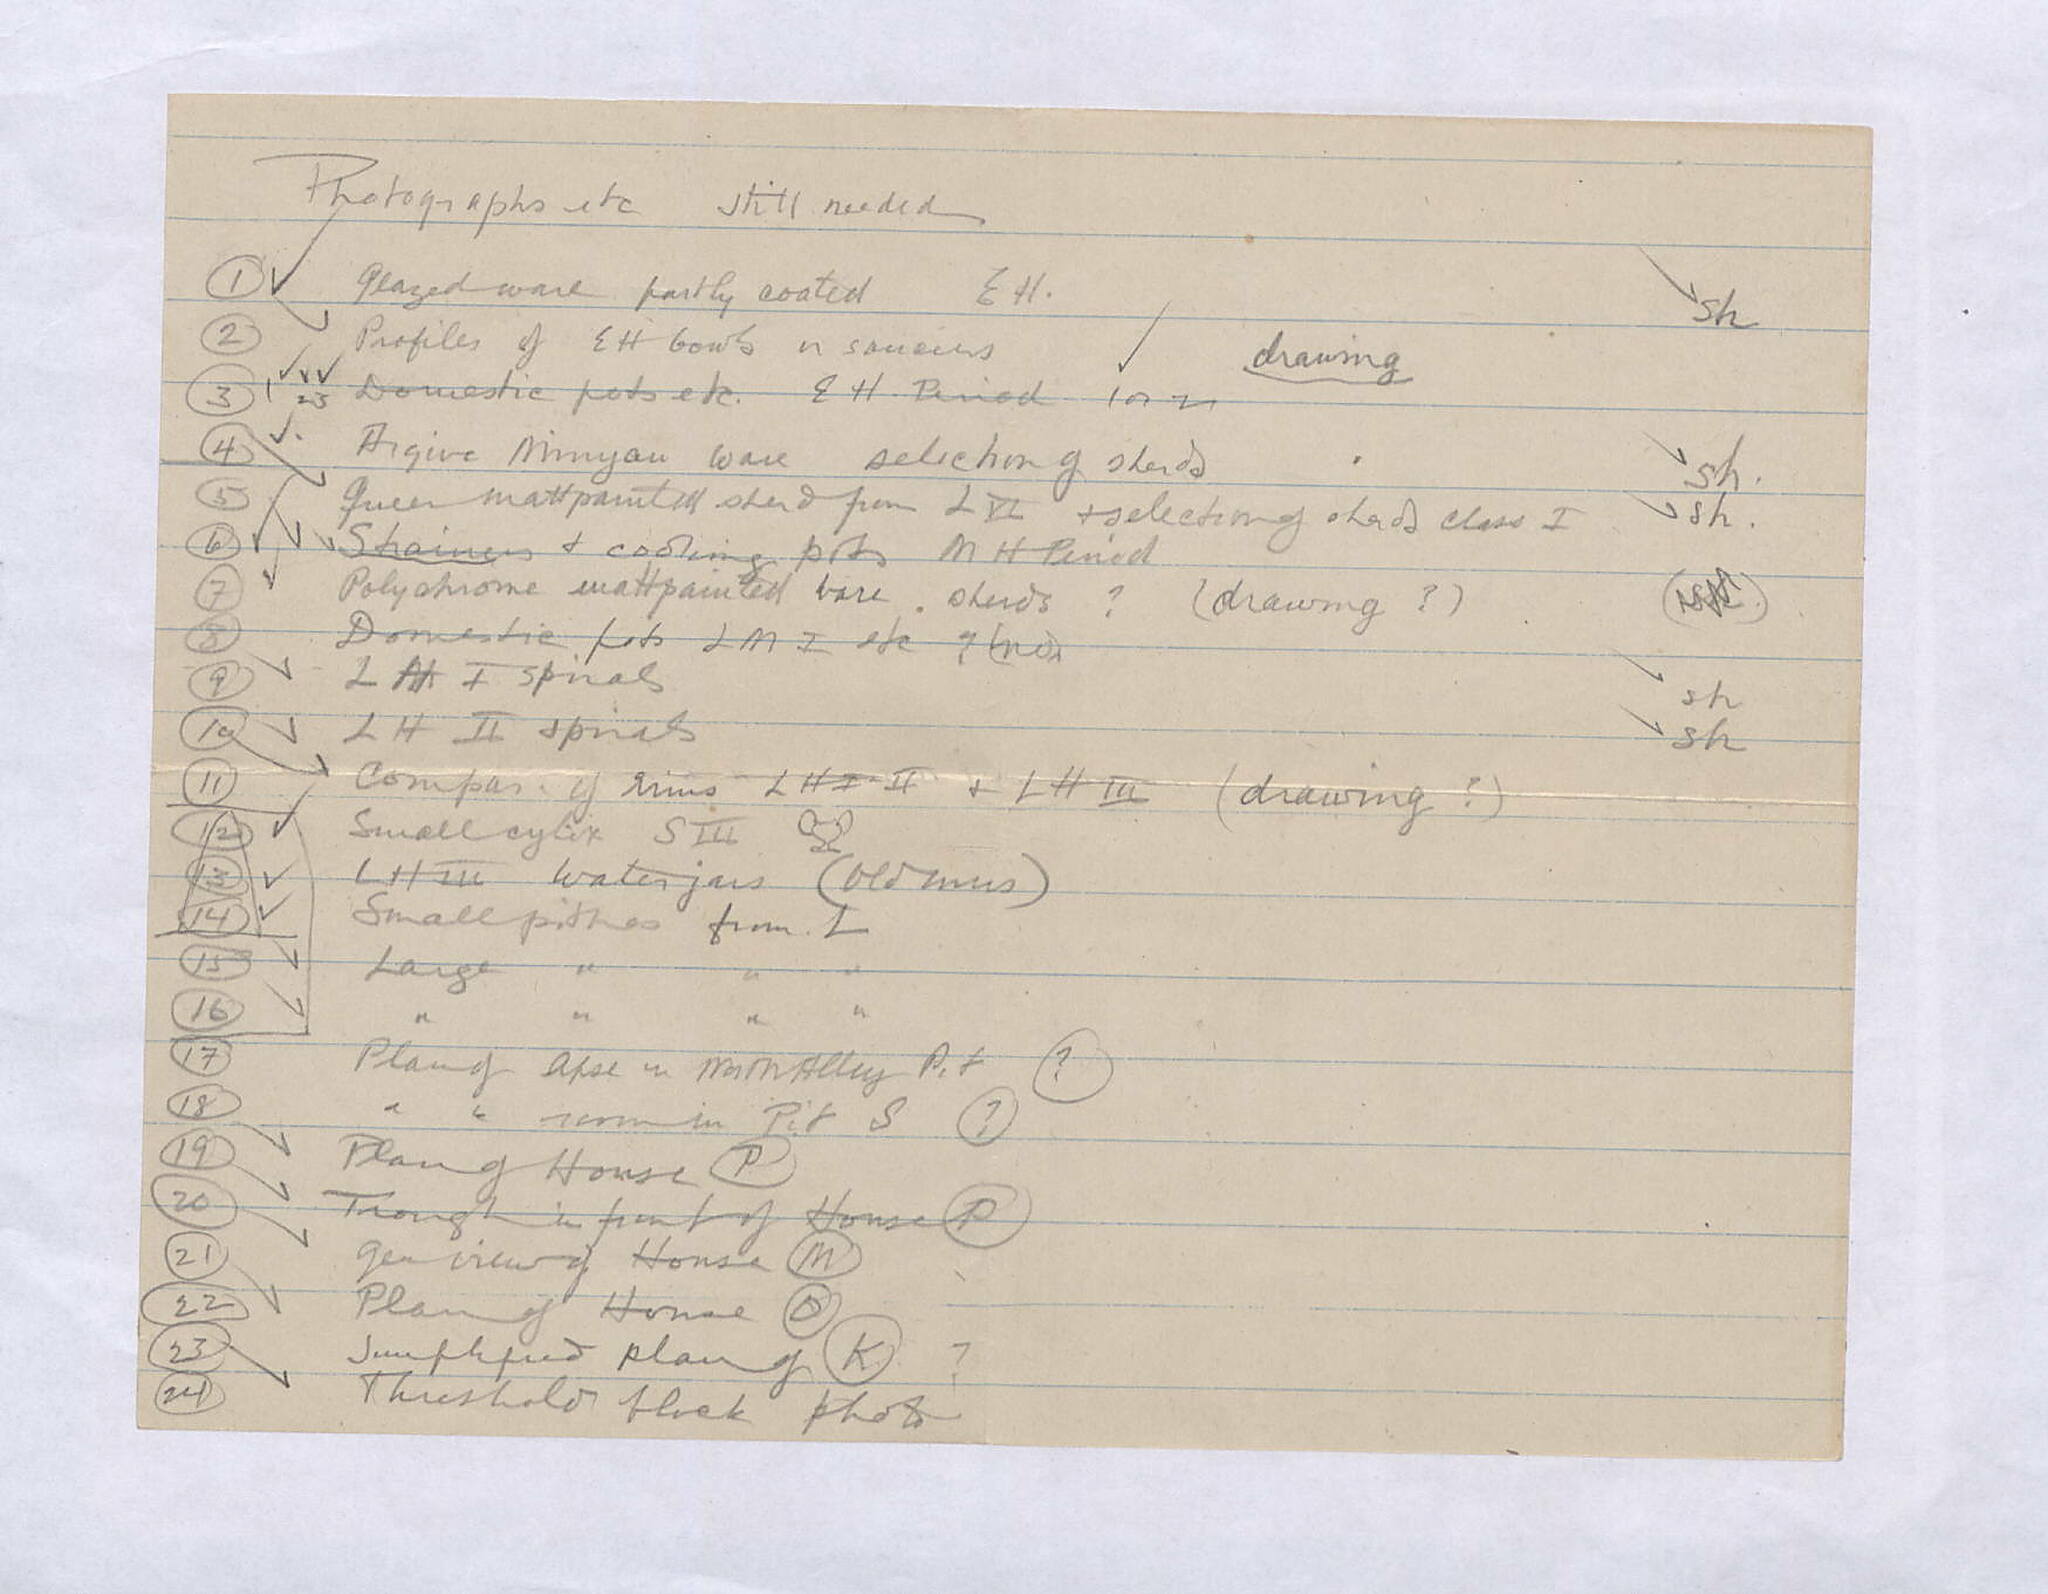 Photographs etc still needed
1 Glazed ware partly coated EH. sh
2 Profiles of EH bowls or saucers drawing
3 1 23 Domestic pots etc. EH Period 1 or 2
4 Argive Minyan ware selection of sherds sh.
5 Queer mattpainted sherd from L VI + selection of sherds class I sh.
6 Strainers + cooking pots MH Period
7 Polychrome mattpainted ware. sherds ? (drawing ?)
8 Domestic pots LM I etc ? (no)
9 LH I spirals sh
10 LH II spirals sh
11 Compar. of rims LH I-II + LH III (drawing ?)
12 Small cylix S III
13 LH III Waterjars (Old mus)
14 Small pithos from L
15 Large " " "
16 " " " "
17 Plan of apse in North Alley Pit ?
18 " " room in Pit S ?
19 Plan of House P
20 Trough in front of House P
21 Gen view of House M
22 Plan of House O
23 Simplified plan of K ?
24 Threshold block photo